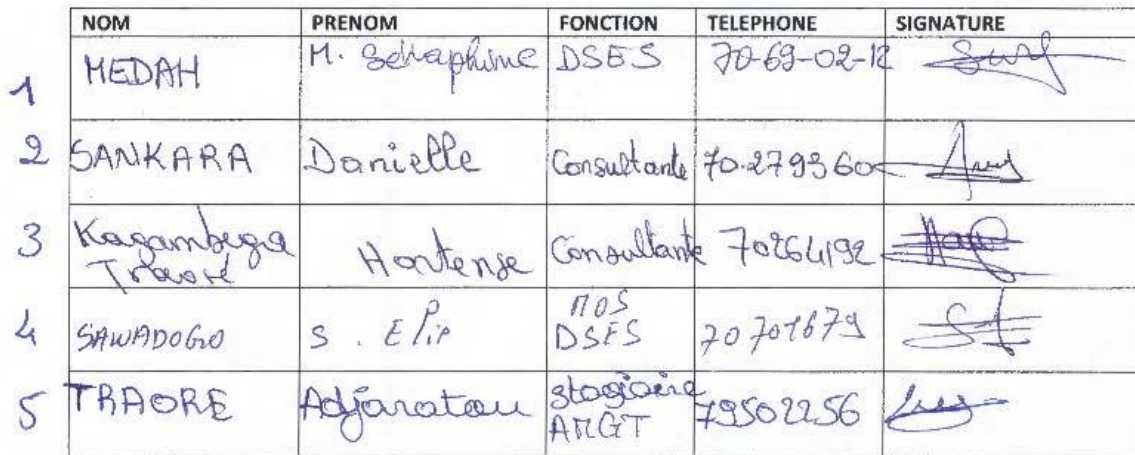 NOM PRENOM FONCTION TELEPHONE SIGNATURE
1 MEDAH M. Séraphine DSES 70-69-02-12
2 SANKARA Danielle Consultante 70.279360
3 Kagambega Traoré Hortense Consultante 70264192
4 SAWADOGO S. Elie MOS DSES 70701679
5 TRAORE Adjaratou stagiaire AMGT 79502256